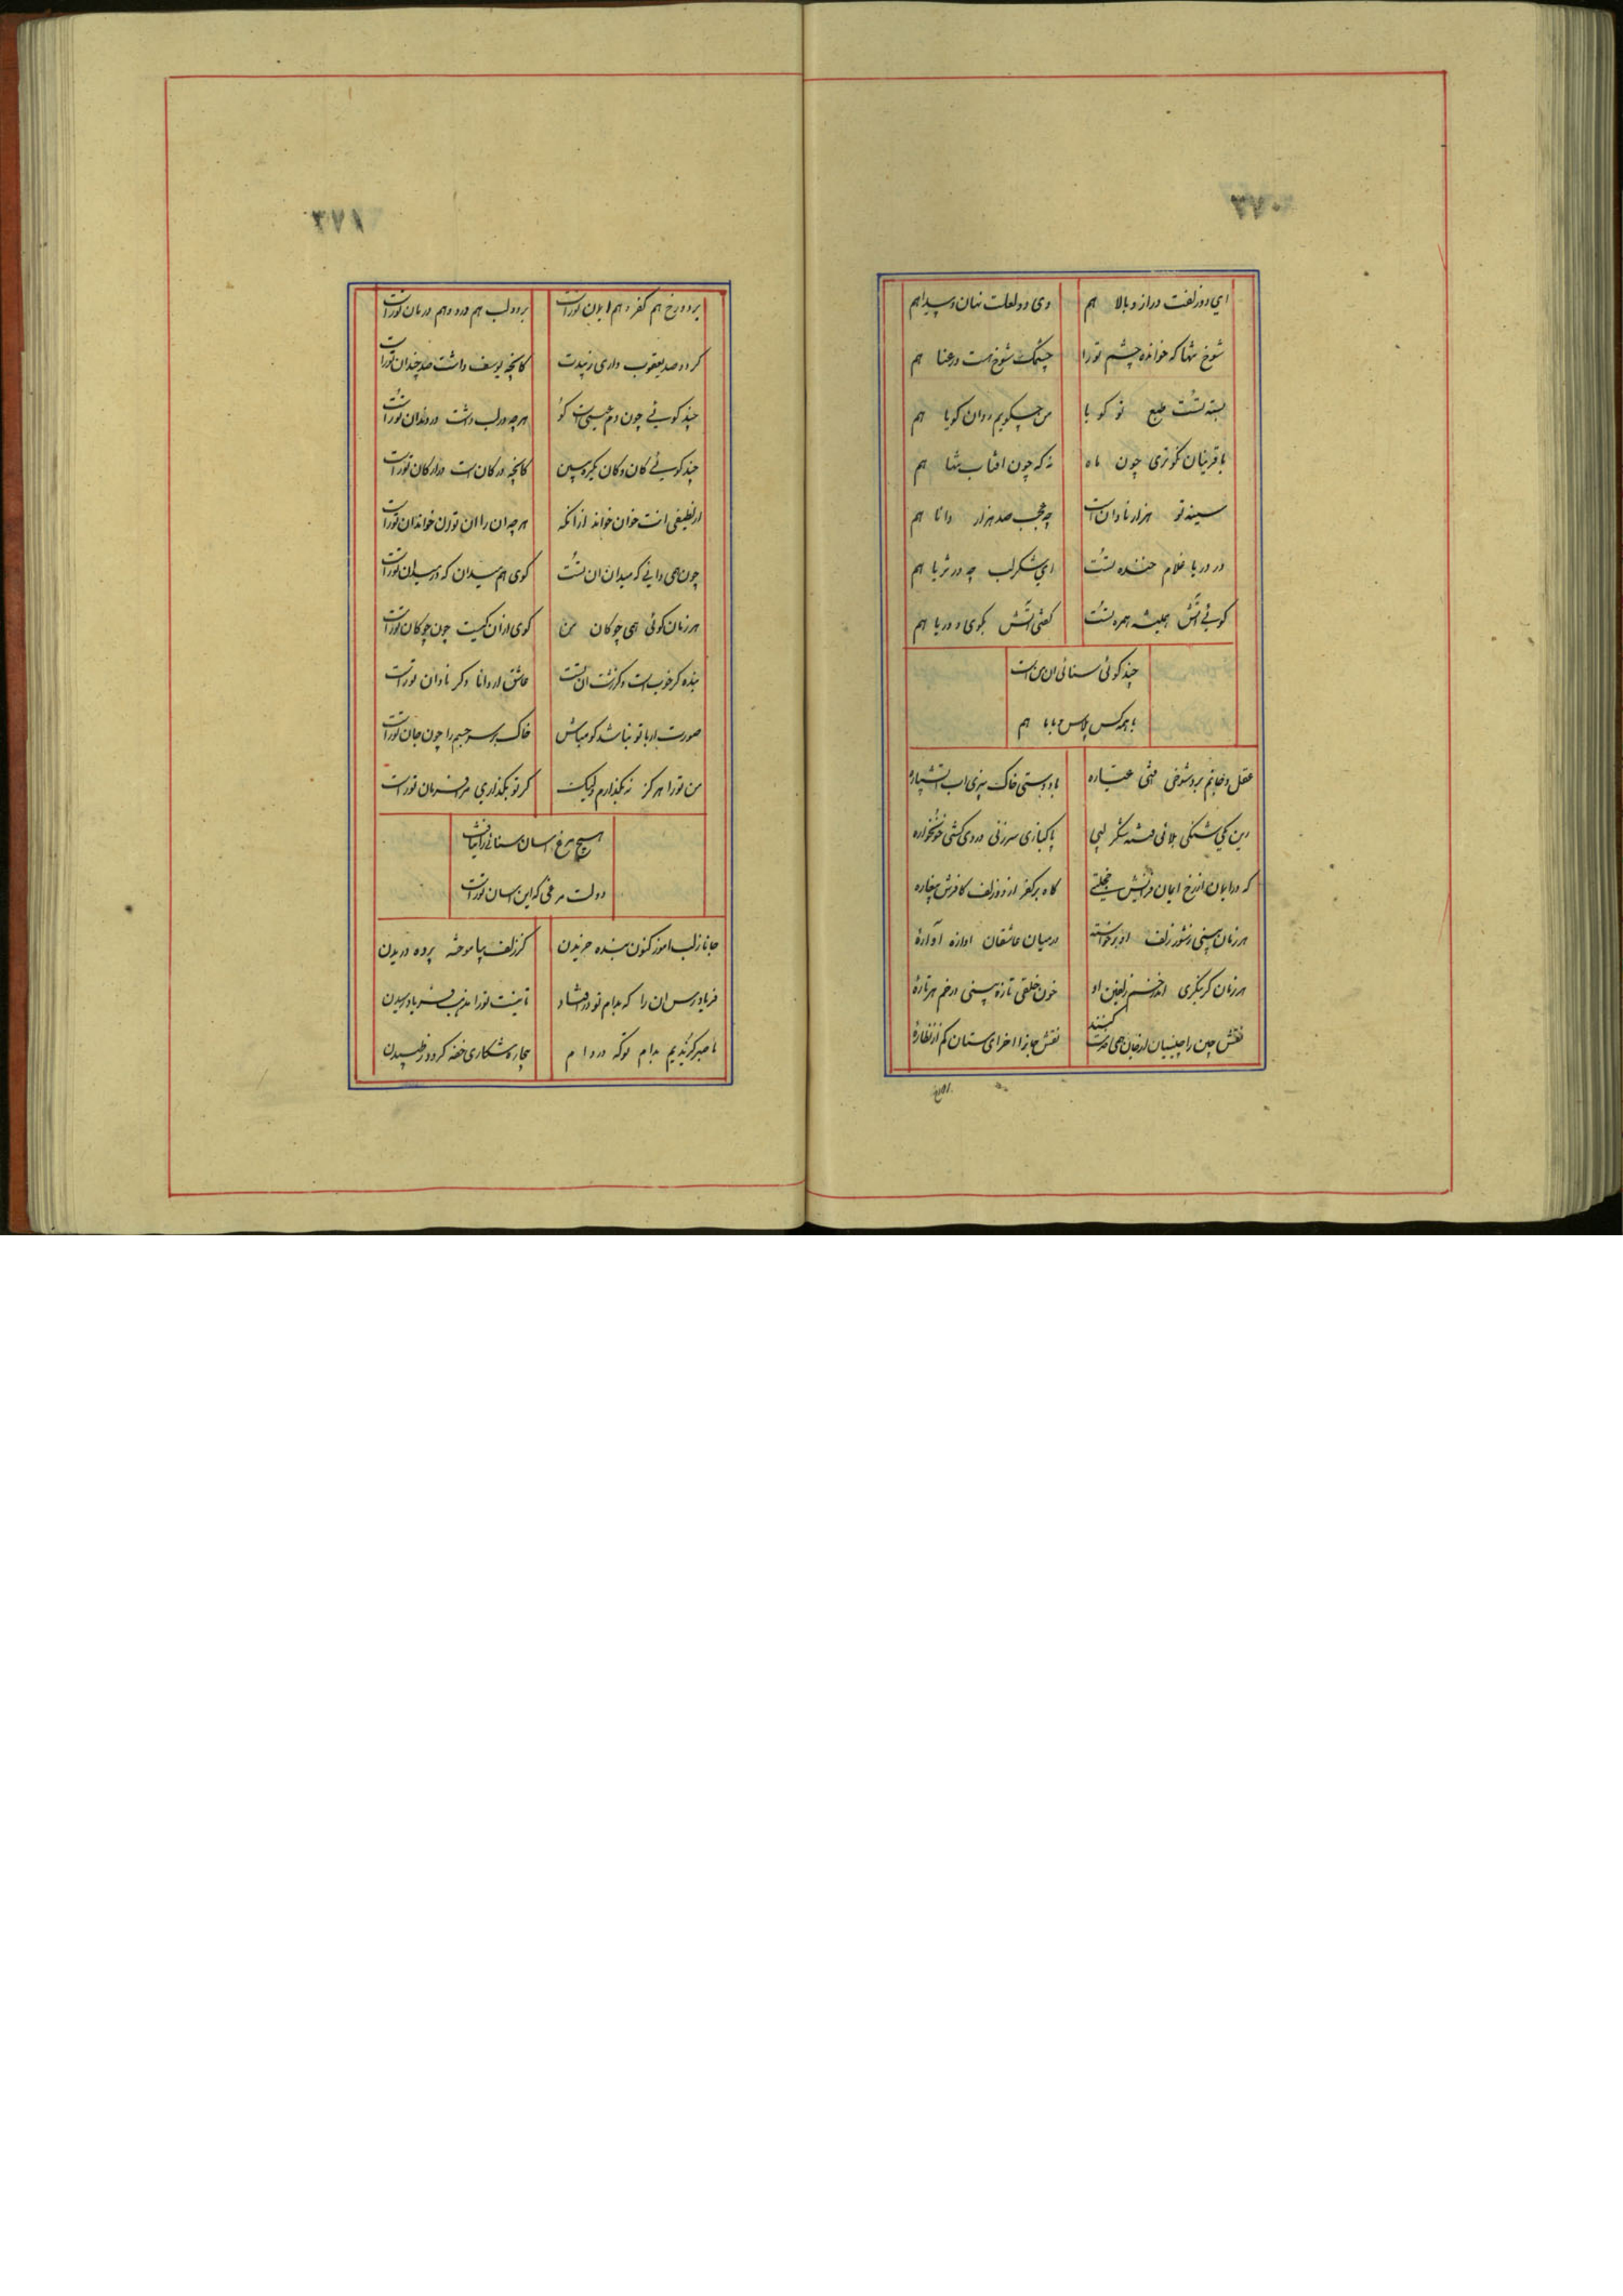 ۳۷۰
ای دو زلفت دراز و بالا هم وی دو لعلت نهان و پیدا هم
شوخ تنها که خوانده چشم تو را چشمک شوخ هست و رعنا هم
بسته تست طبع تو کو یا من چکویم روان کویا هم
با قرینان نکوتری چون ماه نه که چون افتاب تنها هم
سیند تو هزار نادان است چه عجب صد هزار دانا هم
در دریا غلام خنده تست ای شکر لب چه در ثریا هم
کوئی اتش همیشه همره تست کفتی اتش بکوی و دریا هم
چند کوئی سنائی ان من است
با همه کس پلاس و با با هم
عقل و جانم برد شوخی فتی عیاره باد دستی خاک بیزی اب اتشپاره
زین یکی شنکی بلائی فتنه شکر لبی پاکبازی سرزنی دردی کشی خونخواره
که در ایمان از رخ ایمان فزایش حجتی کاه بر کفر از دو زلف کافرش پیغاره
هر زمان بینی ز شور زلف او برخواسته در میان عاشقان اوازه آوارهٔ
هر زمان کر بنکری اندر خم زلفین او خون خلقی تازه بینی در خم هر تارهٔ
نقش چین را چینیان از جان همی خدمت کنند نقش جانرا اخر ای سستان کم از نظارهٔ
۳۷۱
بر دو رخ هم کفر و هم ایمان تو راست بر دو لب هم درد و هم درمان تو راست
کر دو صد یعقوب داری زیبدت کانچه یوسف داشت صد چندان تو راست
چند کوئی چون دم عیسی است کو هر چه در لب داشت در دندان تو راست
چند کوئی کان و کان یکره ببین کانچه در کان است در ارکان تو راست
از لطیفی انت خوان خواند از انکه هر چه ان را ان توان خواند ان تو راست
چون همی دانی که میدان ان تست کوی هم میدان که در میدان تو راست
هر زمان کوئی همی چوکان من کوی از ان کیست چون چوکان تو راست
بنده کر خوبست و کر زشت ان تست عاشق ار دانا و کر نادان تو راست
صورت ار با تو نباشد کو مباش خاک بر سر جسم را چون جان تو راست
من تو را هر کز نه بکذارم ولیک کر تو بکذاری مرا فرمان تو راست
هیچ مرغ اسان سنائی را نیافت
دولت مرغی که این اسان تو راست
جانا ز لب اموز کنون بنده خریدن کز زلف بیاموخته پرده دریدن
فریاد رس ان را که بدام تو در افتاد تا نیست تو را مذهب فریاد رسیدن
ما صبر کزیدیم بدام تو که در دام بیچاره شکاری خفه کردد ز طپیدن